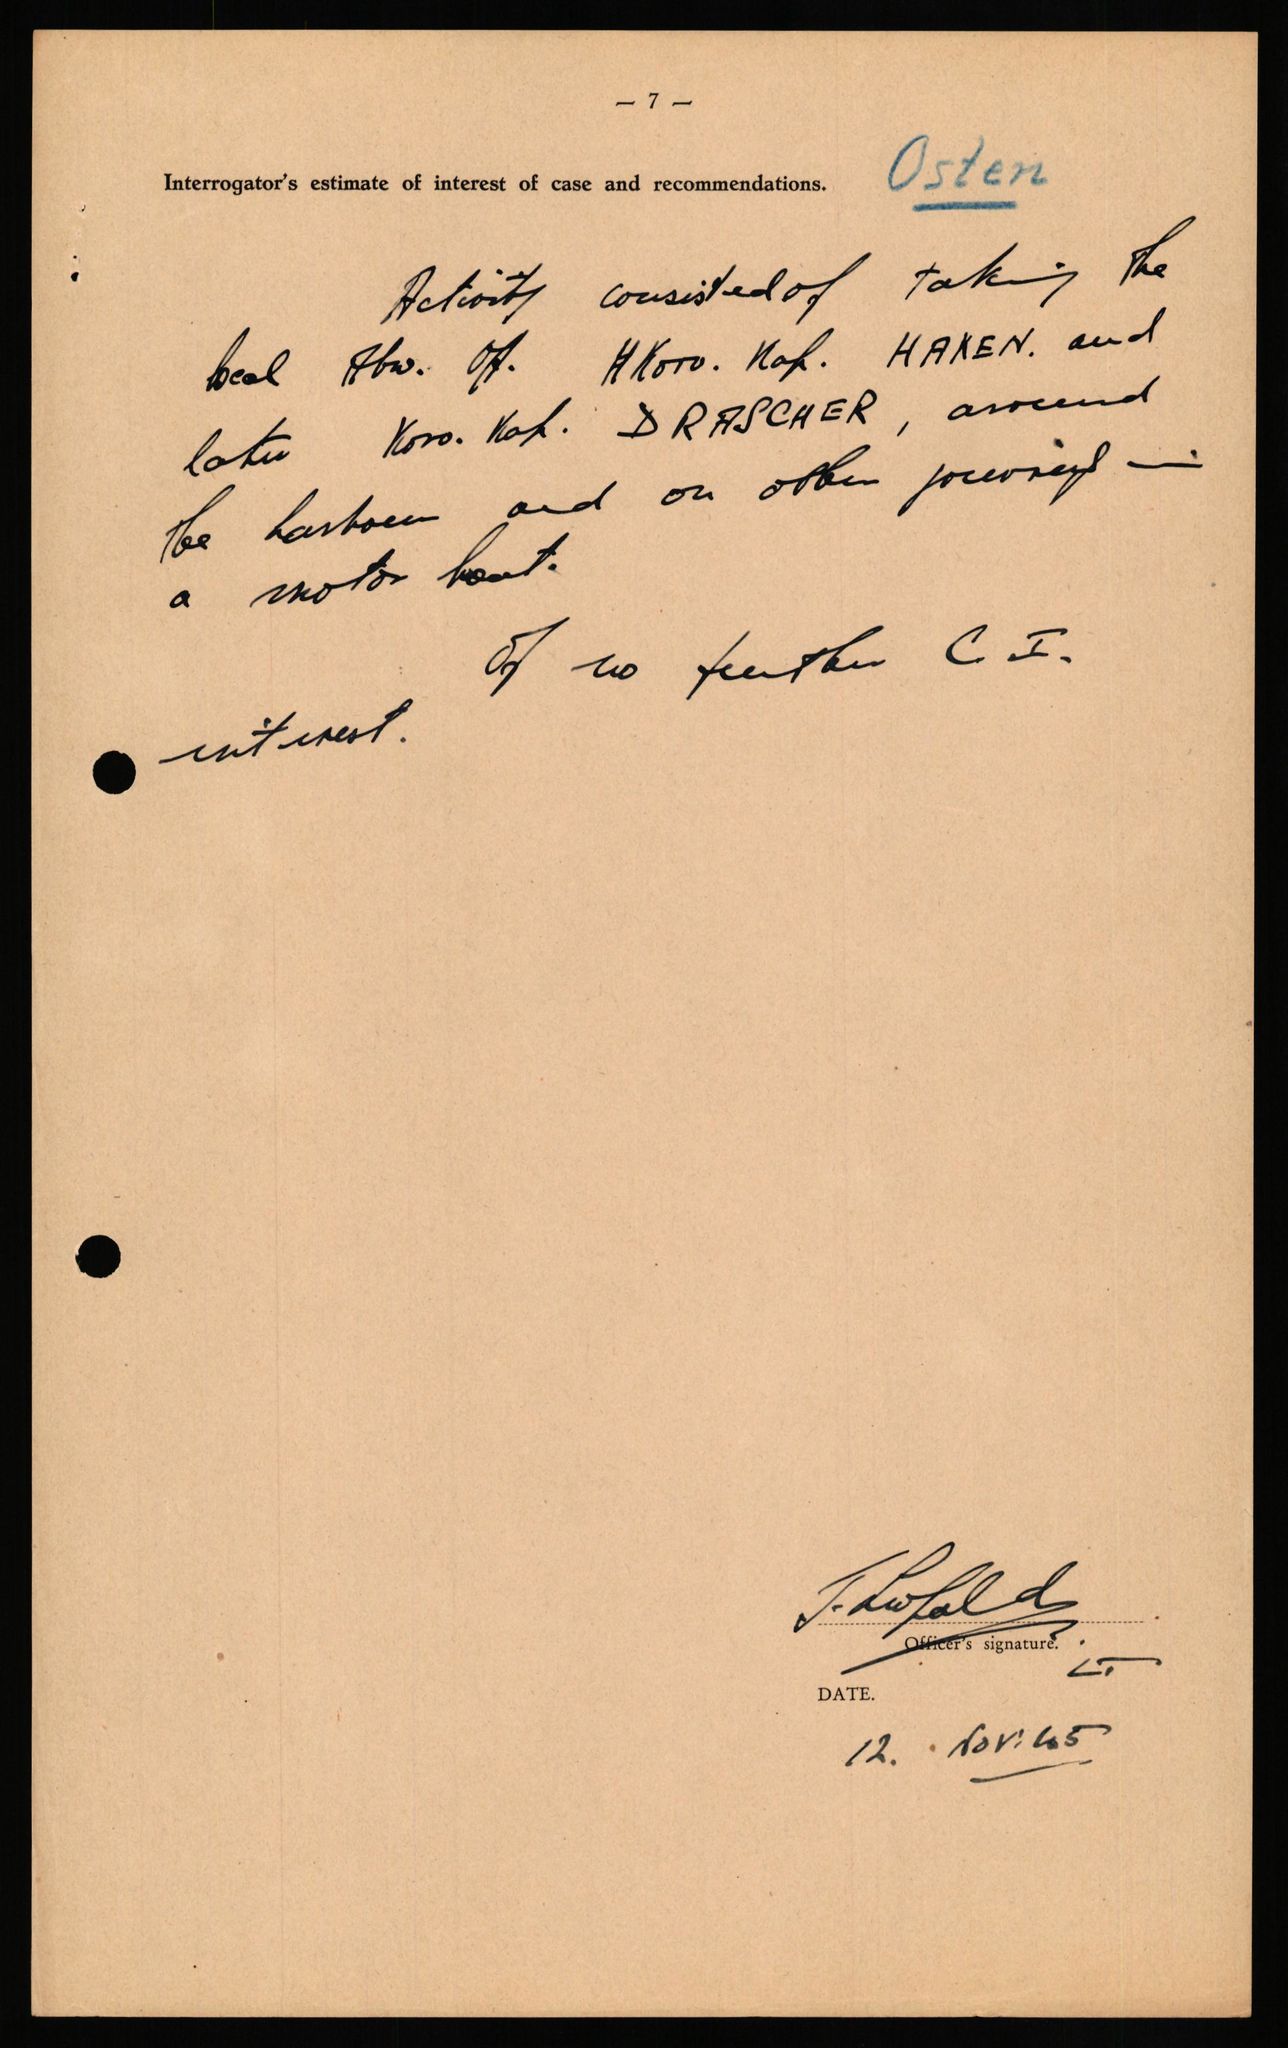 — 7 —
Interrogator's estimate of interest of case and recommendations.
Osten
Activity consisted of taking the
local Abw. Of. Korv. Kap. HAKEN. and
later Korv. Kap. DRASCHER, around
the harbour and on other journeys in
a motor boat.
Of no further C. I.
interest.
Officer's signature.
LT.
DATE.
12. Nov. 45